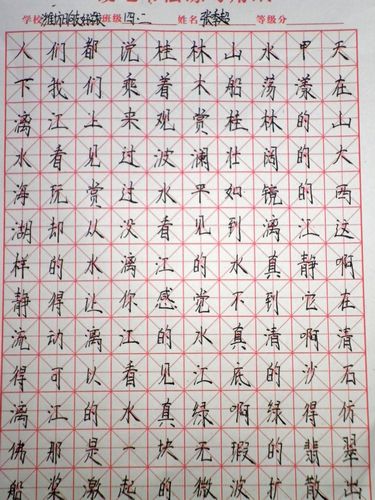 学校 班级 四.二 姓名 张 等级分
人们都说桂林山水甲天
下我们乘着木船荡漾在
漓江上来观赏桂林的山
水看见过波澜壮阔的大
海玩赏过水平如镜的西
湖却从没看见到漓江这
样的水漓江的水真静啊
静得让你感觉不到它在
流动漓江的水真清啊清
得可以看见江底的沙石
漓江的水真绿啊绿得仿
佛那是一块无瑕的翡翠
船桨激起的微波扩散出